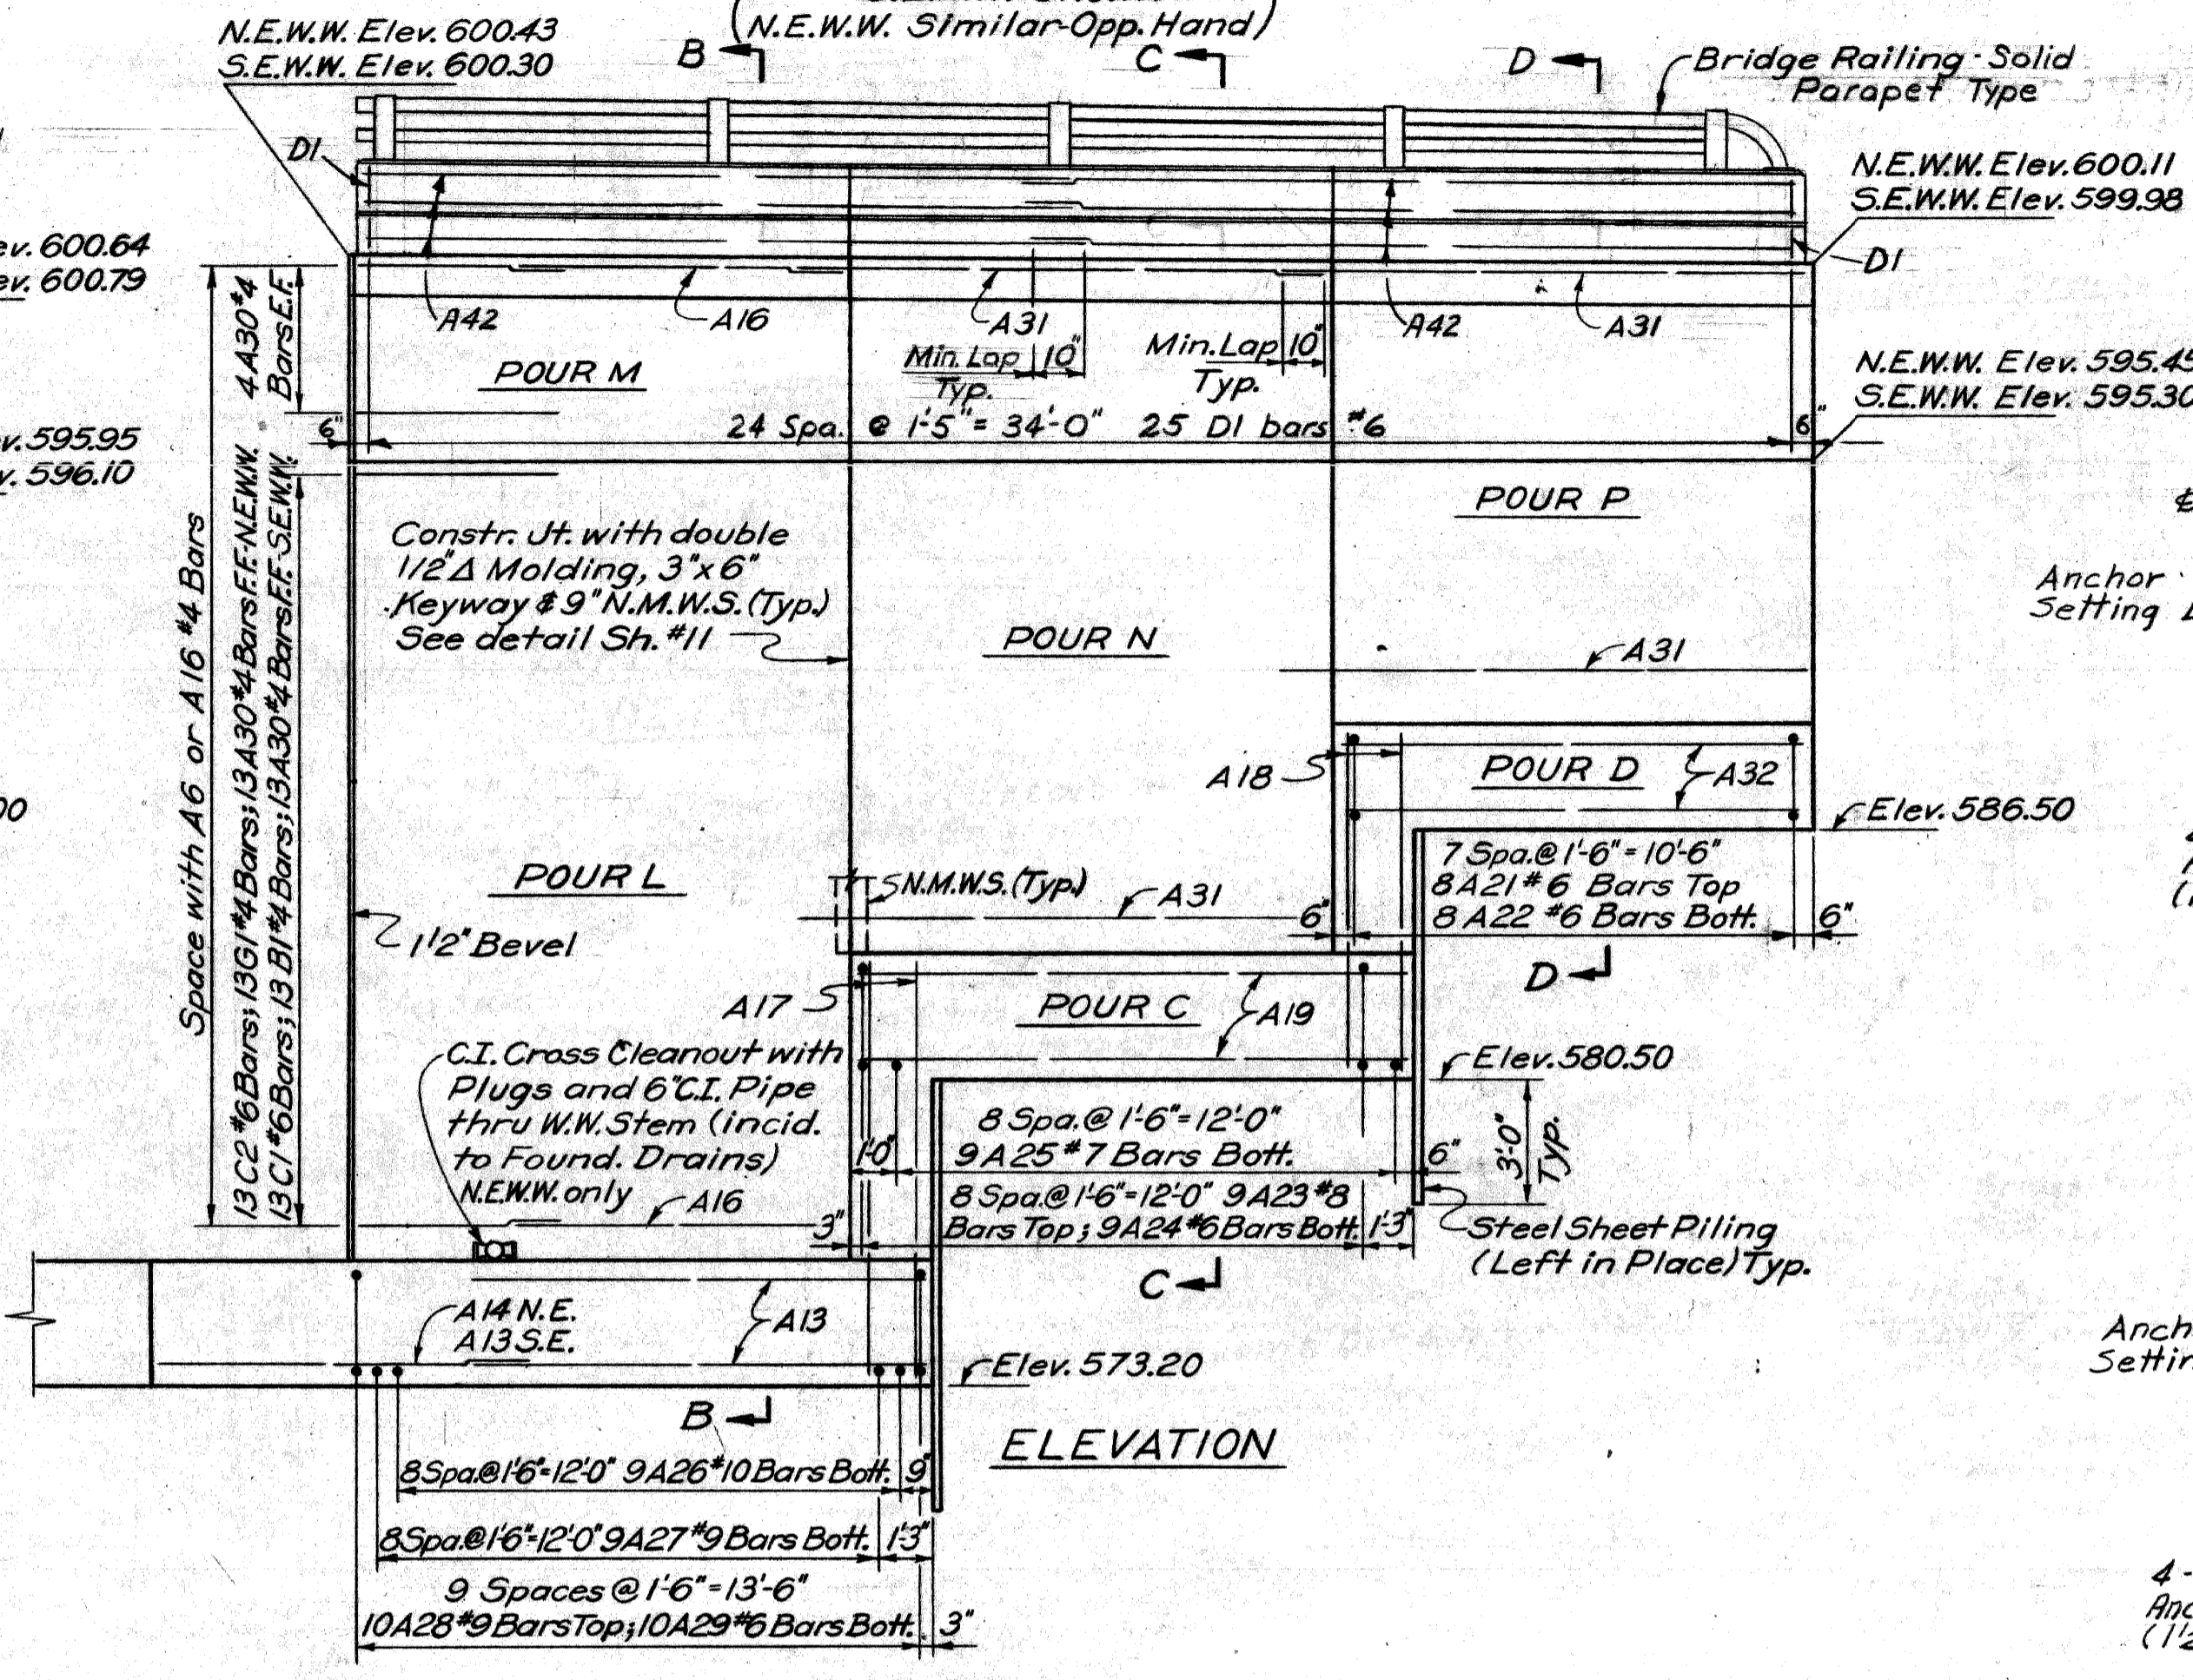 (N.E.W.W. Similar-Opp. Hand)
N.E.W.W. Elev. 600.43
S.E.W.W. Elev. 600.30
B
C
D
Bridge Railing - Solid
Parapet Type
D1
N.E.W.W. Elev. 600.11
S.E.W.W. Elev. 599.98
D1
600.64
600.79
A42
A16
A31
A42
A31
Min. Lap 10"
Typ.
Min. Lap 10"
Typ.
POUR M
N.E.W.W. Elev. 595.45
S.E.W.W. Elev. 595.30
6"
24 Spa. @ 1'-5" = 34'-0" 25 D1 bars #6
6"
595.95
596.10
4A30 #4
Bars E.F.
Space with A6 or A16 #4 Bars
13C2 #6 Bars; 13G1 #4 Bars; 13A30 #4 Bars F.F.-N.E.W.W.
13C1 #6 Bars; 13B1 #4 Bars; 13A30 #4 Bars F.F.-S.E.W.W.
POUR P
Constr. Jt. with double
1/2" Δ Molding, 3"x6"
Keyway & 9" N.M.W.S. (Typ.)
See detail Sh. #11
POUR N
A31
Anchor
Setting
A18
POUR D
A32
Elev. 586.50
7 Spa. @ 1'-6" = 10'-6"
8 A21 #6 Bars Top
8 A22 #6 Bars Bott.
6"
6"
POUR L
N.M.W.S. (Typ.)
A31
1 1/2" Bevel
D
A17
POUR C
A19
C.I. Cross Cleanout with
Plugs and 6" C.I. Pipe
thru W.W. Stem (incid.
to Found. Drains)
N.E.W.W. only
A16
Elev. 580.50
8 Spa. @ 1'-6" = 12'-0"
9 A25 #7 Bars Bott.
1'-0"
6"
3'-0"
Typ.
8 Spa. @ 1'-6" = 12'-0" 9 A23 #8
Bars Top; 9 A24 #6 Bars Bott.
3"
1'-3"
Steel Sheet Piling
(Left in Place) Typ.
C
A14 N.E.
A13 S.E.
A13
Elev. 573.20
Setting
B
ELEVATION
8 Spa. @ 1'-6" = 12'-0" 9 A26 #10 Bars Bott. 9"
8 Spa. @ 1'-6" = 12'-0" 9 A27 #9 Bars Bott. 1'-3"
9 Spaces @ 1'-6" = 13'-6"
10 A28 #9 Bars Top; 10 A29 #6 Bars Bott. 3"